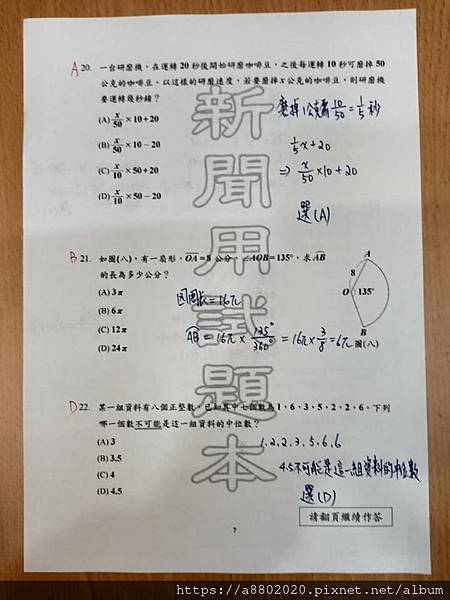 A 20. 一台研磨機，在運轉 20 秒後開始研磨咖啡豆，之後每運轉 10 秒可磨掉 50
公克的咖啡豆。以這樣的研磨速度，若要磨掉 x 公克的咖啡豆，則研磨機
要運轉幾秒鐘？
(A) x/50 × 10 + 20
(B) x/50 × 10 − 20
(C) x/10 × 50 + 20
(D) x/10 × 50 − 20
磨掉1公克需 10/50 = 1/5 秒
1/5 x + 20
⇒ x/50 × 10 + 20
選(A)
B 21. 如圖(八)，有一扇形，OA = 8 公分，∠AOB = 135°，求 AB
的長為多少公分？
(A) 3π
(B) 6π
(C) 12π
(D) 24π
圓周長 = 16π
AB = 16π × 135°/360° = 16π × 3/8 = 6π
A
8
O 135°
B
圖(八)
D 22. 某一組資料有八個正整數，已知其中七個數為 1、6、3、5、2、2、6。下列
哪一個數不可能是這一組資料的中位數？
(A) 3
(B) 3.5
(C) 4
(D) 4.5
1,2,2,3,5,6,6
4.5不可能是這一組資料的中位數
選(D)
請翻頁繼續作答
7
新聞用試題本
https://a8802020.pixnet.net/album